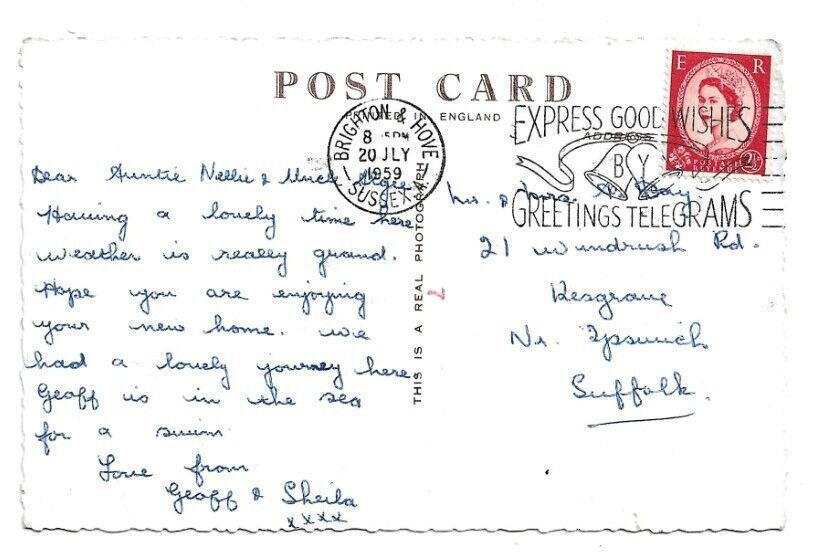 POST CARD
PRINTED IN ENGLAND
ADDRESS
E R
POSTAGE
REVENUE
2½
BRIGHTON & HOVE
8 15PM
20 JLY
1959
SUSSEX
EXPRESS GOOD WISHES
BY
GREETINGS TELEGRAMS
Dear Auntie Nellie & Uncle
Having a lovely time here
weather is really grand.
Hope you are enjoying
your new home. We
had a lovely journey here
Geoff is in the sea
for a swim
Love from
Geoff & Sheila
xxxx
THIS IS A REAL PHOTOGRAPH
7
Mr. & Mrs. A.
21 Windrush Rd.
Kesgrave
Nr. Ipswich
Suffolk.